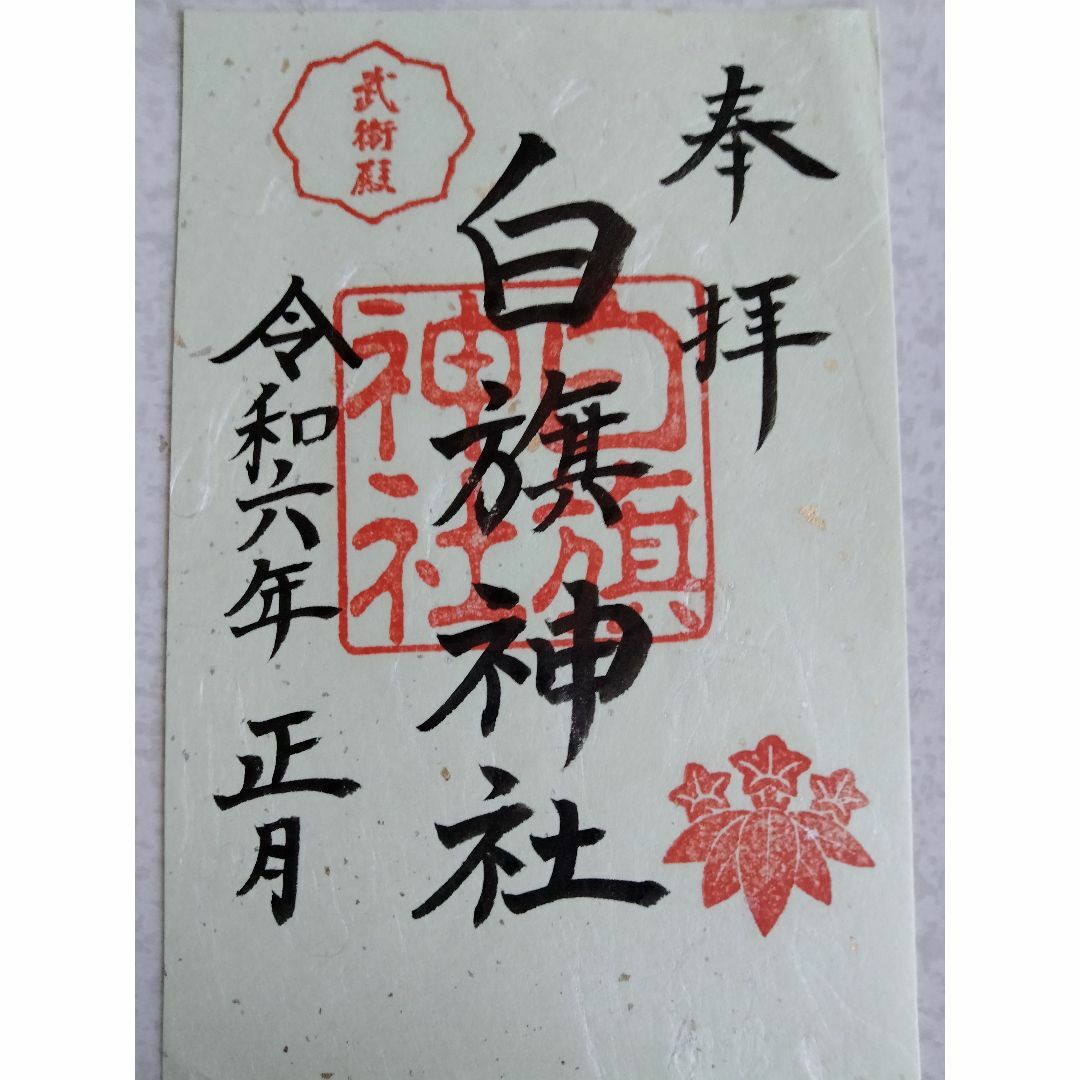 奉拝
白旗神社
白旗
神社
武衛殿
令和六年正月